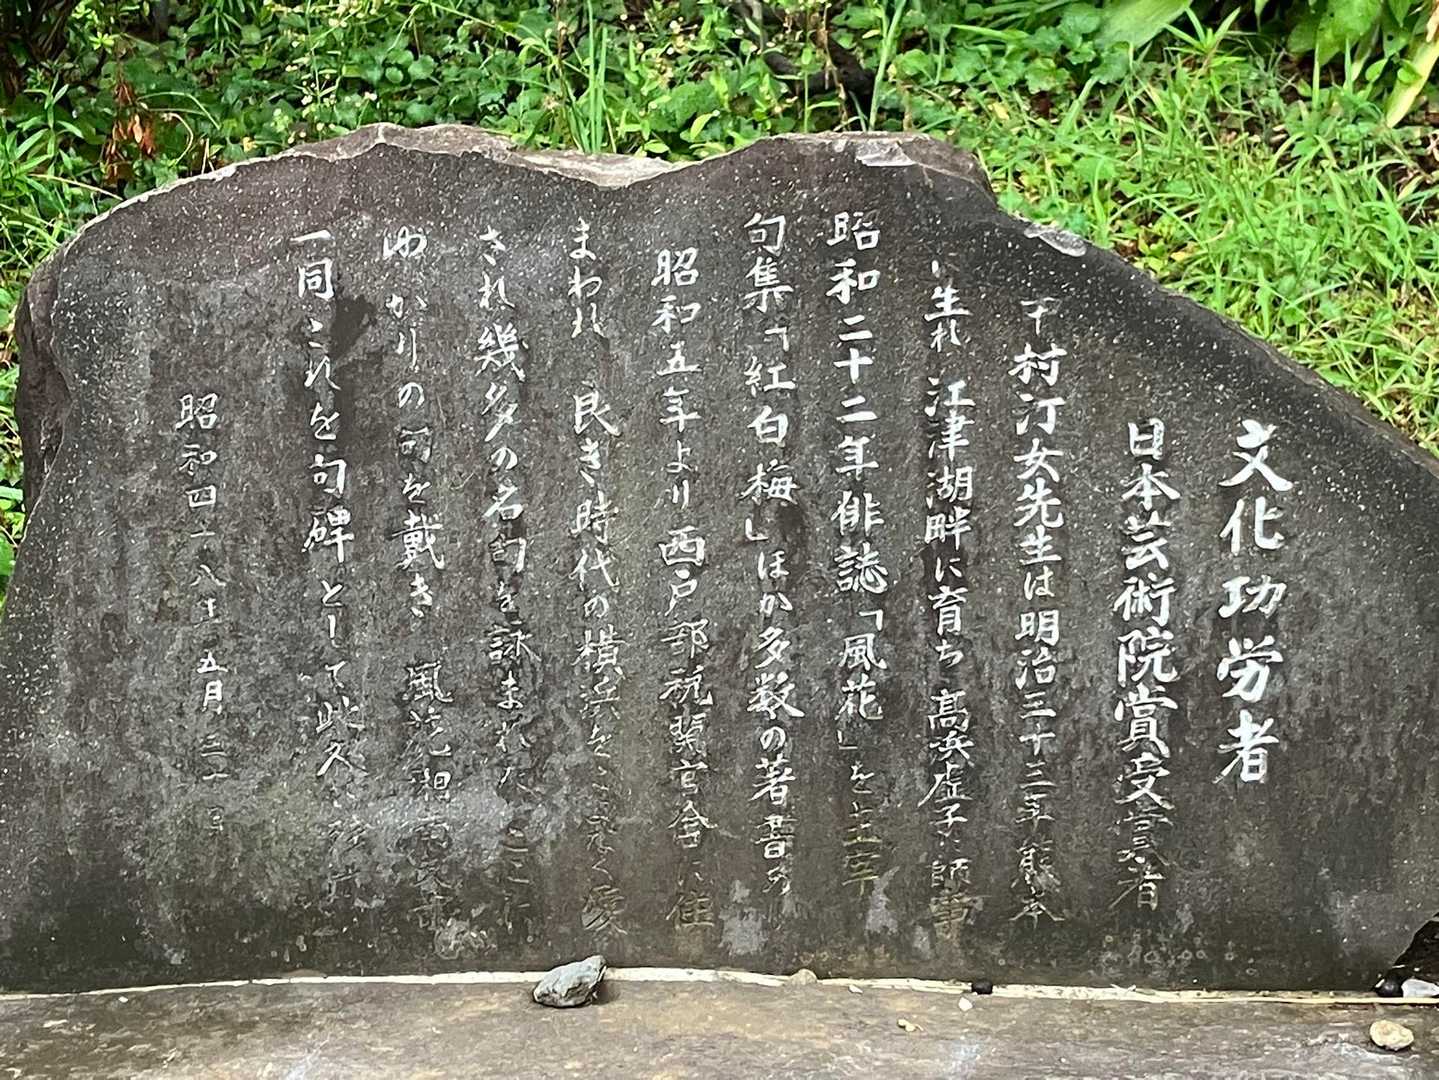 文化功労者
日本芸術院賞受賞者
中村汀女先生は明治三十三年熊本
に生れ江津湖畔に育ち高浜虚子に師事
昭和二十二年俳誌「風花」を主宰
句集「紅白梅」ほか多数の著書あり
昭和五年より西戸部税関官舎に住
まわれ 良き時代の横浜をこよなく愛
され幾多の名句を詠まれた ここに
ゆかりの句を戴き 風花
一同これを句碑として
昭和四十八年 五月 三十